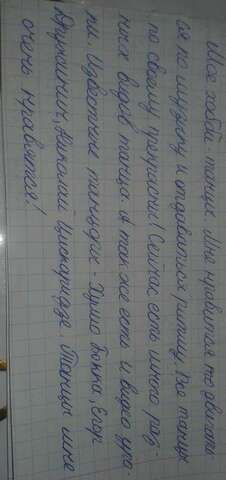 Мое хобби танцы. Мне нравится то двигать
ся по музыку и отдаваться ритму. Все танцы
по своему хороши! Сейчас есть много раз-
ных видов танца. А так же есть и видео уро-
ки. Известные танцоры - Хулио Бокка, Егор
Дружинин, Николай Цискаридзе. Танцы мне
очень нравятся!